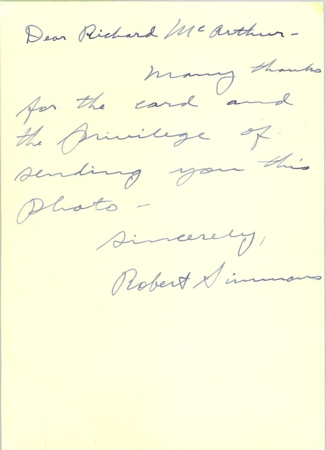 Dear Richard McArthur -
Many thanks
for the card and
the privilege of
sending you this
photo -
Sincerely,
Robert Simmons